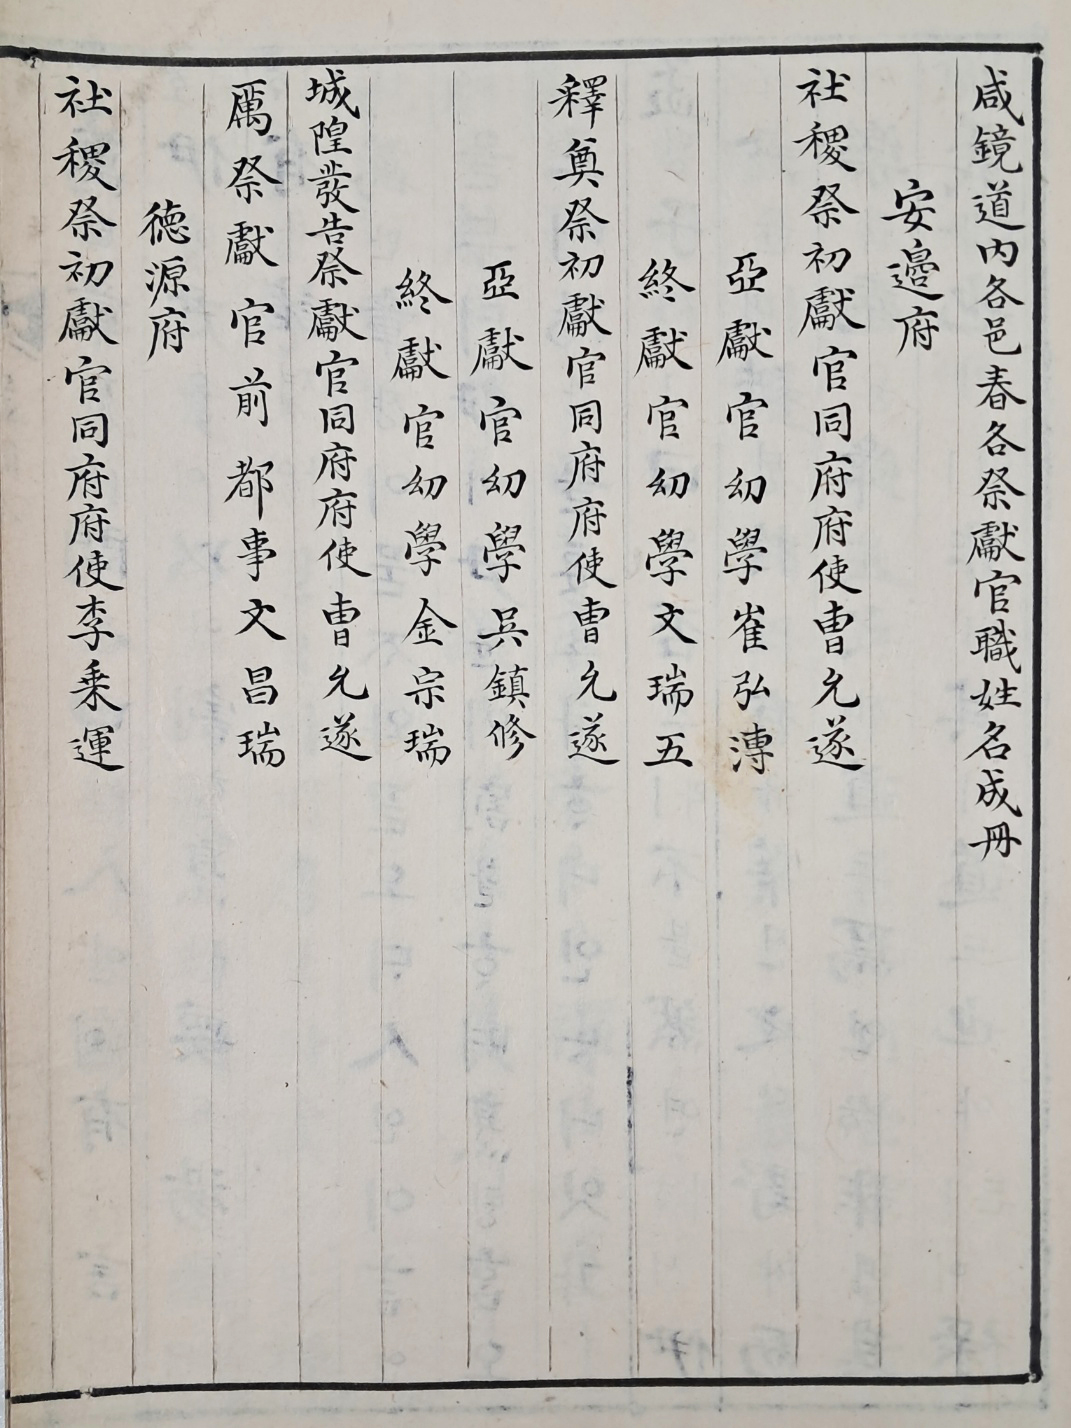 咸鏡道內各邑春各祭獻官職姓名成冊
安邊府
社稷祭初獻官同府府使曺允遂
亞獻官幼學崔弘溥
終獻官幼學文瑞五
釋奠祭初獻官同府府使曺允遂
亞獻官幼學吳鎮修
終獻官幼學金宗瑞
城隍發告祭獻官同府府使曺允遂
厲祭獻官前都事文昌瑞
德源府
社稷祭初獻官同府府使李秉運